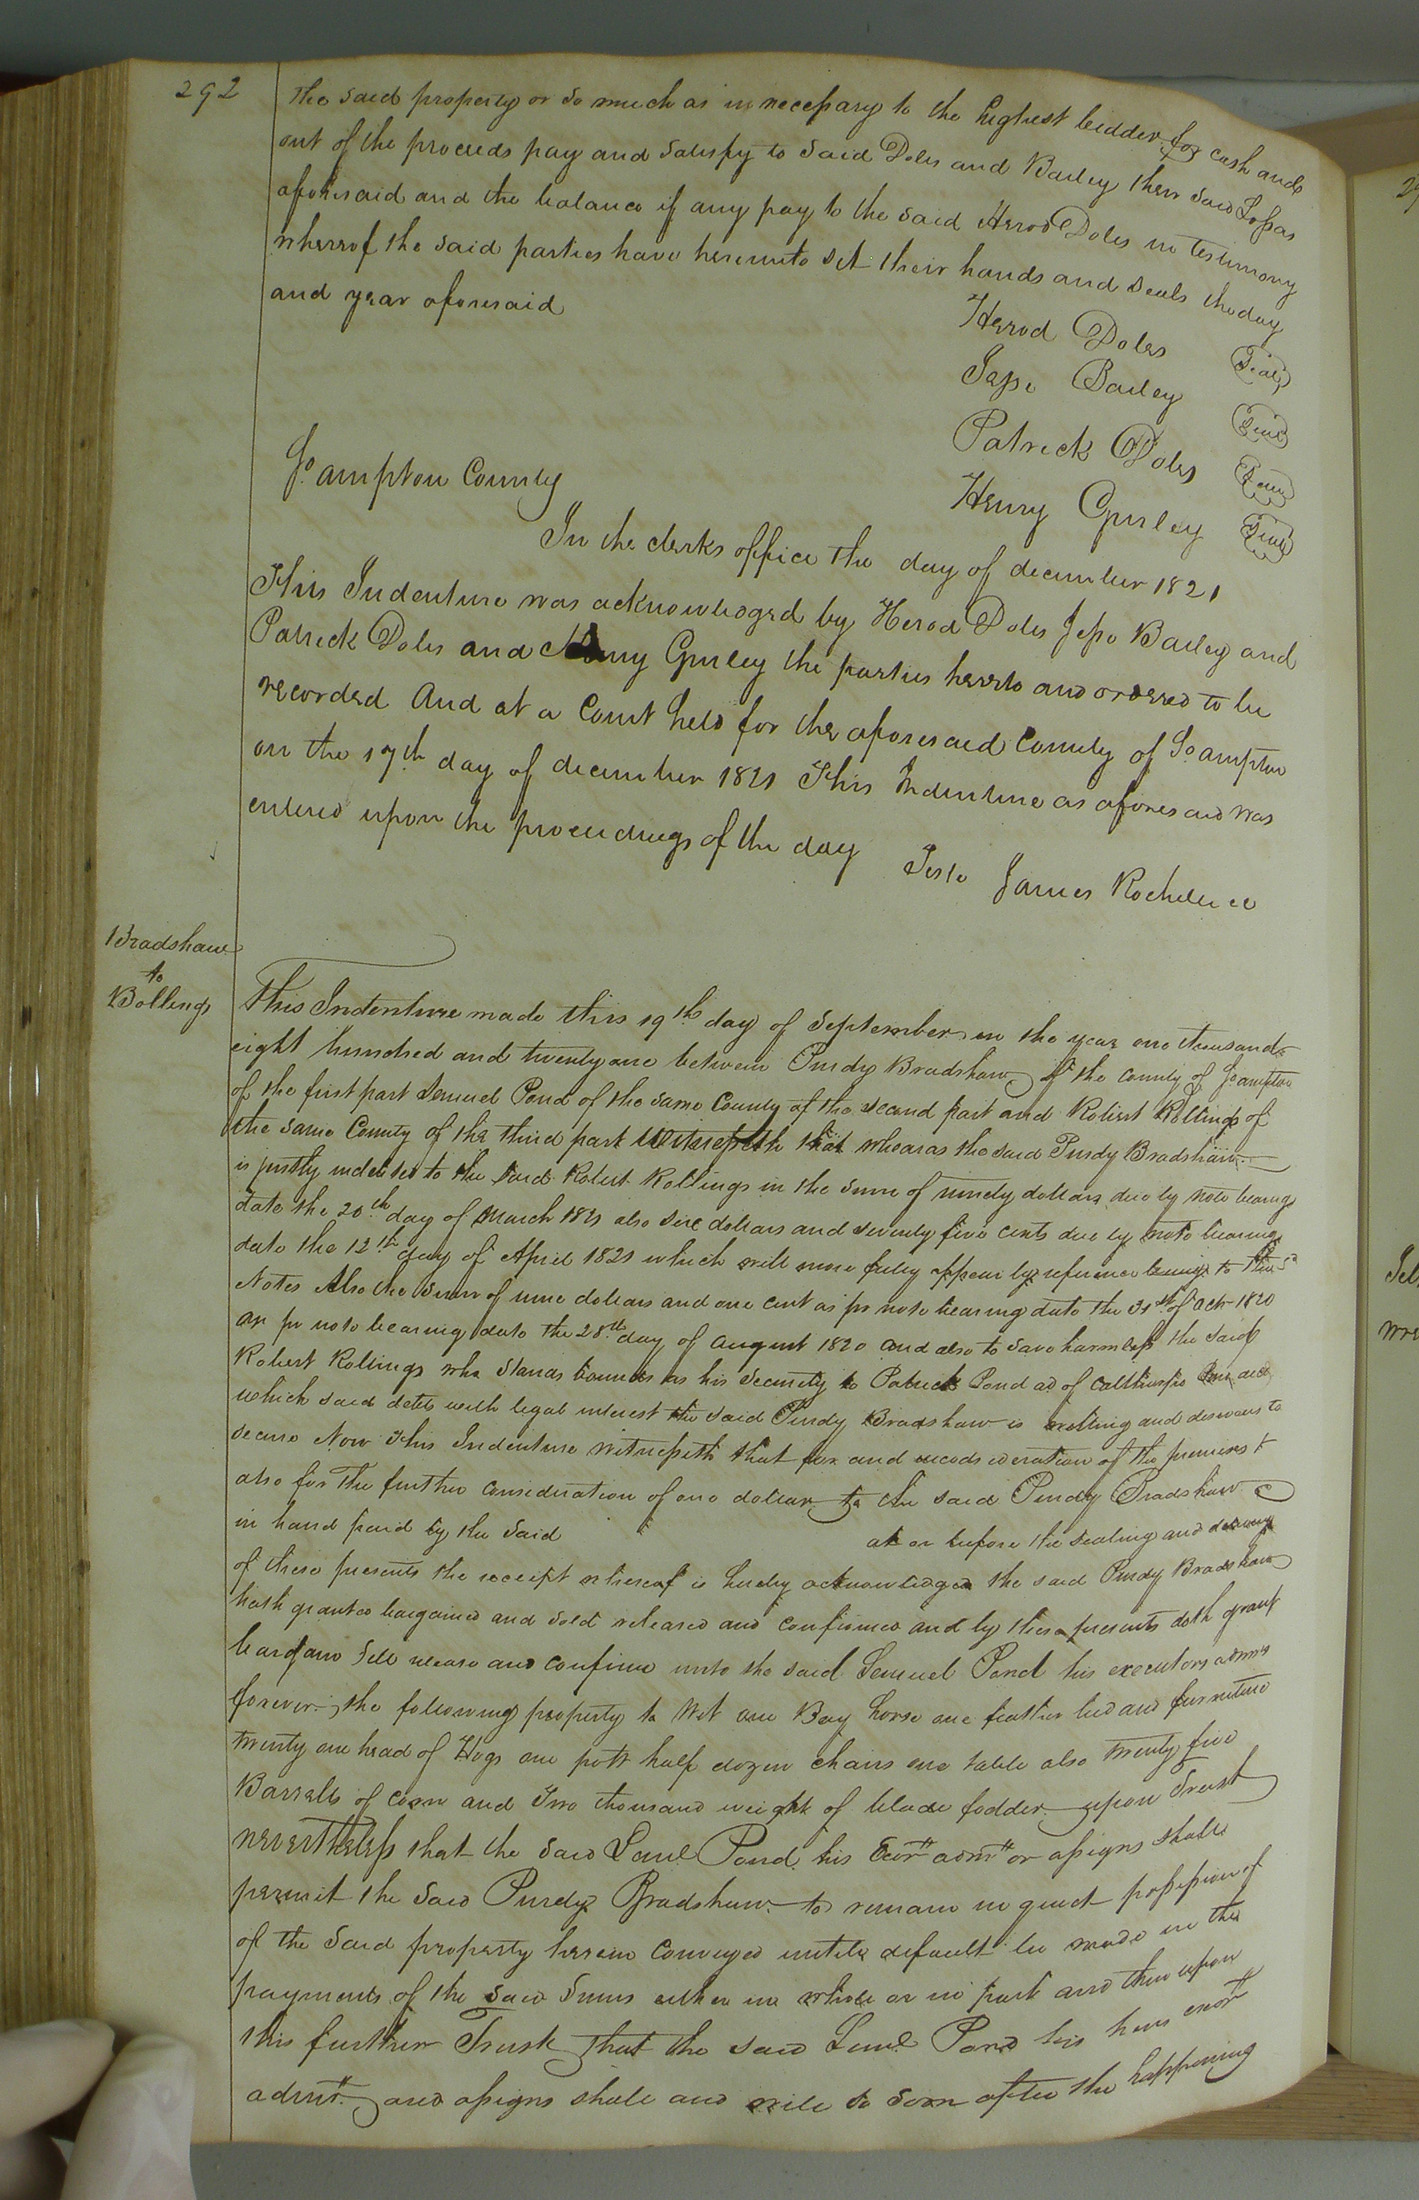 292
the said property or so much as is necessary to the highest bidder for cash and
out of the proceeds pay and satisfy to said Doles and Bailey their said Loss as
aforesaid and the balance if any pay to the said Herod Doles in testimony
whereof the said parties have hereunto set their hands and seals the day
and year aforesaid
Herod Doles Seal
Jesse Bailey Seal
Patrick Doles Seal
Henry Gurley Seal
So.ampton County
In the clerks office the day of december 1821
This Indenture was acknowledged by Herod Doles Jesse Bailey and
Patrick Doles and Henry Gurley the parties hereto and ordered to be
recorded And at a Court held for the aforesaid County of So.ampton
on the 17th day of december 1821 This Indenture as aforesaid was
entered upon the proceedings of the day
Teste James Rochelle cc
Bradshaw
to
Bollings
This Indenture made this 19th day of September in the year one thousand
eight hundred and twenty one between Purdy Bradshaw of the County of Soampton
of the first part Lemuel Pond of the same County of the second part and Robert Rollings of
the same County of the third part Witnesseth that wheareas the said Purdy Bradshaw
is justly indebted to the said Robert Rollings in the sum of ninety dollars due by note bearing
date the 20th day of March 1821 also six dollars and seventy five cents due by note bearing
date the 12th day of April 1821 which will more fuley appear by reference being to the sd
Notes Also the sum of nine dollars and one cent as pr note bearing date the 31st of Octr 1820
as pr note bearing date the 28th day of august 1820 and also to save harmless the said
Robert Rollings who stands bounds as his security to Patrick Pond ad of
which said debts with legal interest the said Purdy Bradshaw is willing and desirous to
secure Now This Indenture witnesseth that for and in consideration of the premises &
also for the further consideration of one dollar to the said Purdy Bradshaw
in hand paid by the said at or before the sealing and delivery
of these presents the receipt whereof is hereby acknowledged the said Purdy Bradshaw
hath granted bargained and sold released and confirmed and by these presents doth grant
bargain sell release and confirm unto the said Lemuel Pond his executors admrs
forever the following property to wit one Bay horse one feather bed and furniture
twenty one head of Hogs one pott half dozen chairs one table also twenty five
Barrells of corn and Two thousand weight of blade fodder upon Trust
nevertheless that the said Leml Pond his Exors admrs or assigns shall
permit the said Purdy Bradshaw to remain in quiet possession of
of the said property herein conveyed untill default be made in the
payments of the said sums either in whole or in part and then upon
this further Trust that the said Leml Pond his heirs exors
admrs and assigns shall and will so soon after the happening